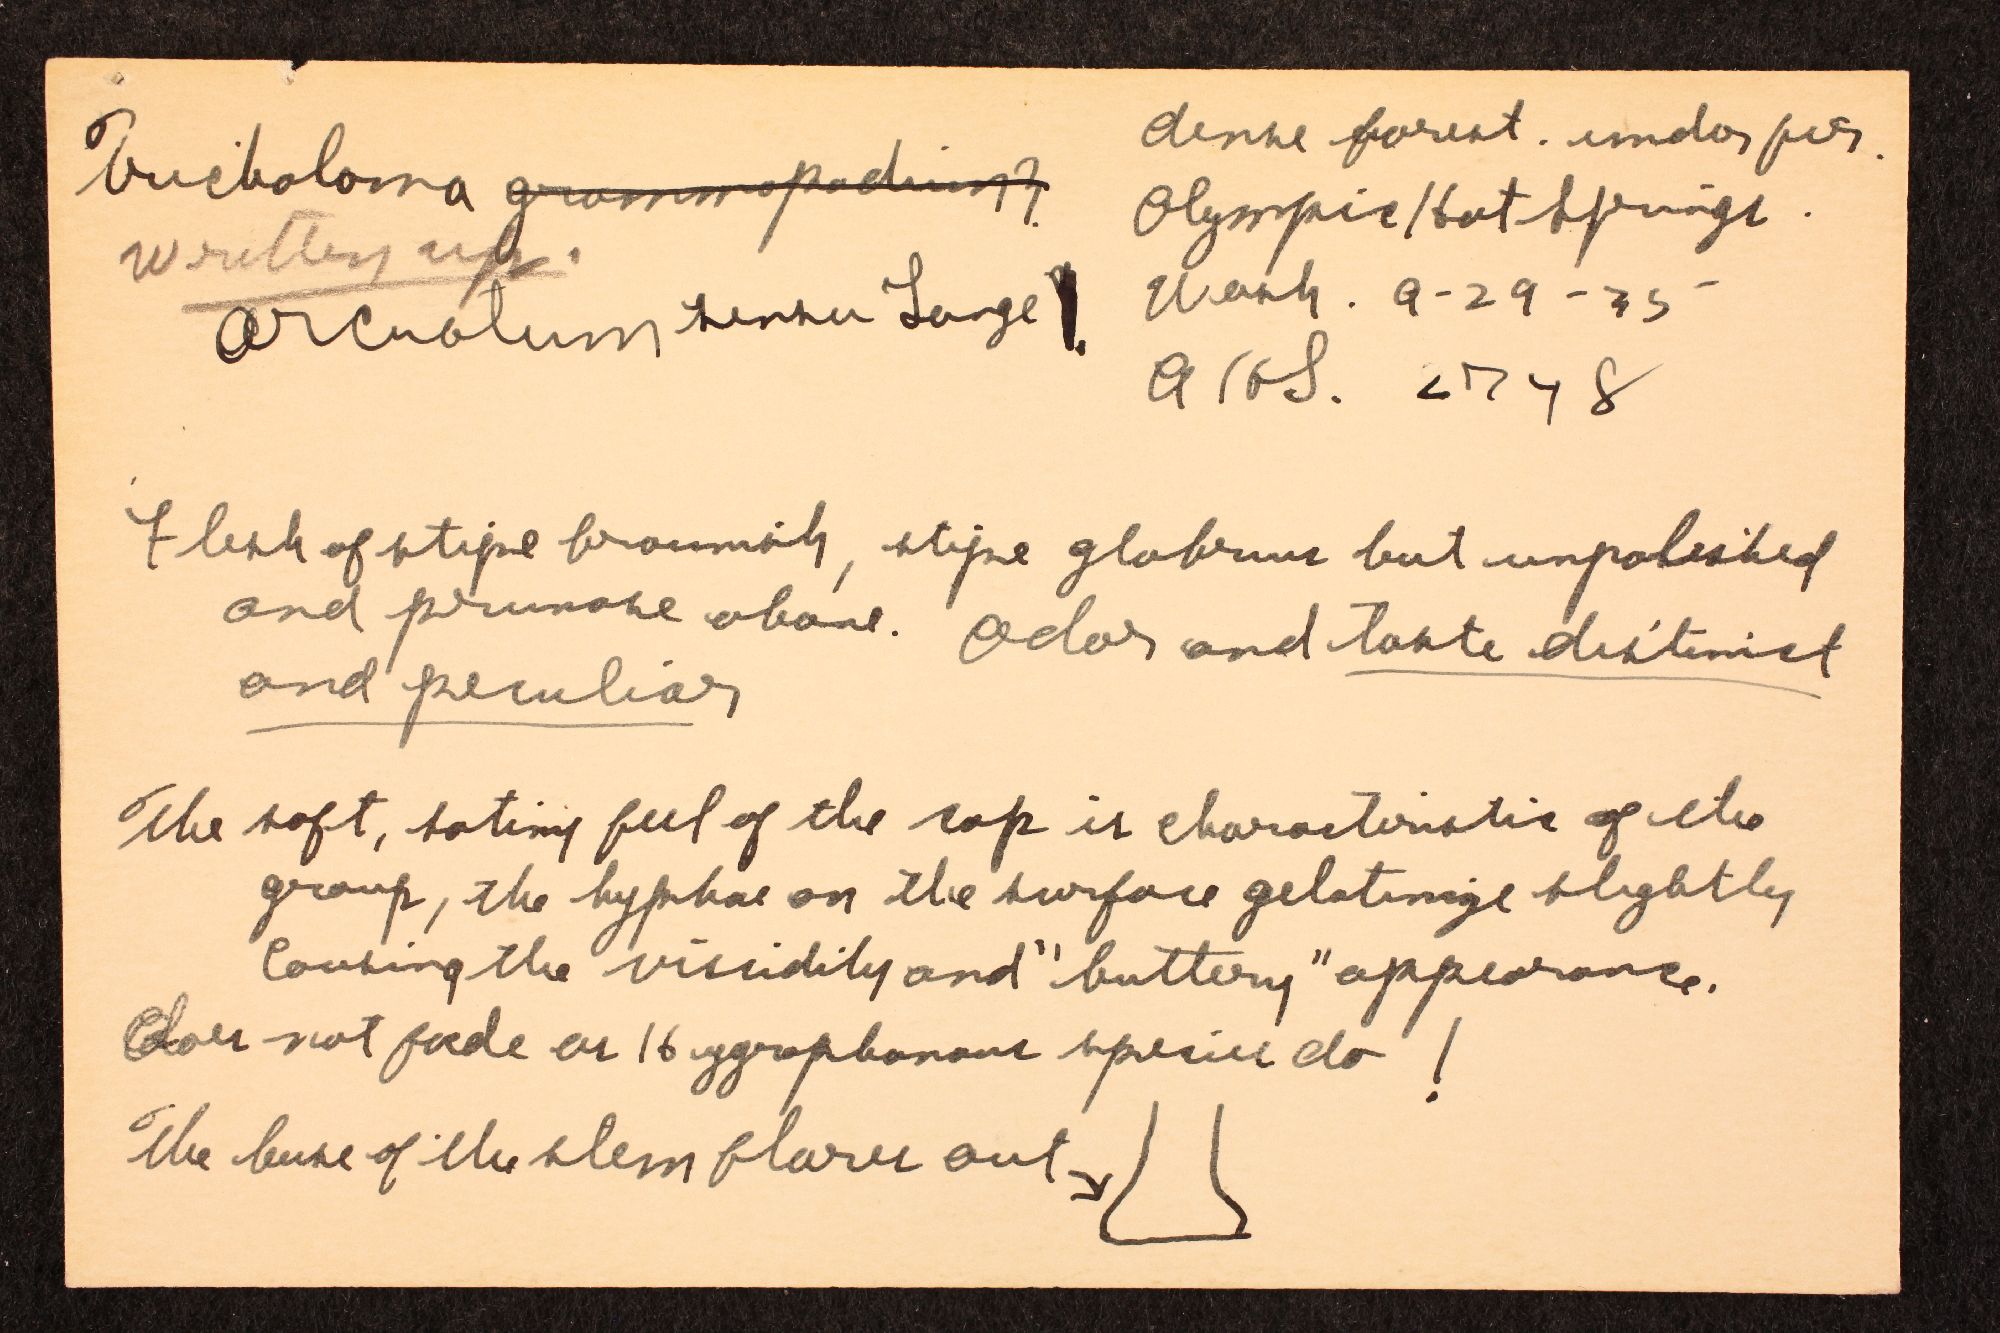 Tricholoma grammopodium?
written up.
arcuatum sensu Lange!
dense forest. under fir.
Olympic Hot Springs.
Wash. 9-29-35
AHS. 2748
Flesh of stipe brownish, stipe glabrous but unpolished
and pruinose above. Odor and taste distinct
and peculiar
The soft, satiny feel of the cap is characteristic of the
group, the hyphae on the surface gelatinize slightly
causing the viscidity and "buttery" appearance.
Does not fade as Hygrophanous species do!
The base of the stem flares out